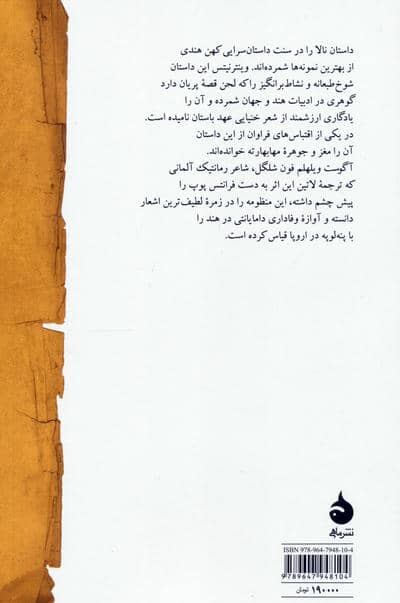 داستان نالا را در سنت داستان‌سرایی کهن هندی
از بهترین نمونه‌ها شمرده‌اند. وینترنیتس این داستان
شوخ‌طبعانه و نشاط‌برانگیز را که لحن قصهٔ پریان دارد
گوهری در ادبیات هند و جهان شمرده و آن را
یادگاری ارزشمند از شعر خنیایی عهد باستان نامیده است.
در یکی از اقتباس‌های فراوان از این داستان
آن را مغز و جوهرهٔ مهابهارته خوانده‌اند.
آگوست ویلهلم فون شلگل، شاعر رمانتیک آلمانی
که ترجمهٔ لاتین این اثر به دست فرانتس بوپ را
پیش چشم داشته، این منظومه را در زمرهٔ لطیف‌ترین اشعار
دانسته و آوازهٔ وفاداری دامایانتی در هند را
با پنه‌لوپه در اروپا قیاس کرده است.
نشر ماهی
ISBN 978-964-7948-10-4
9 789647 948104
۱۹۰۰۰۰ تومان